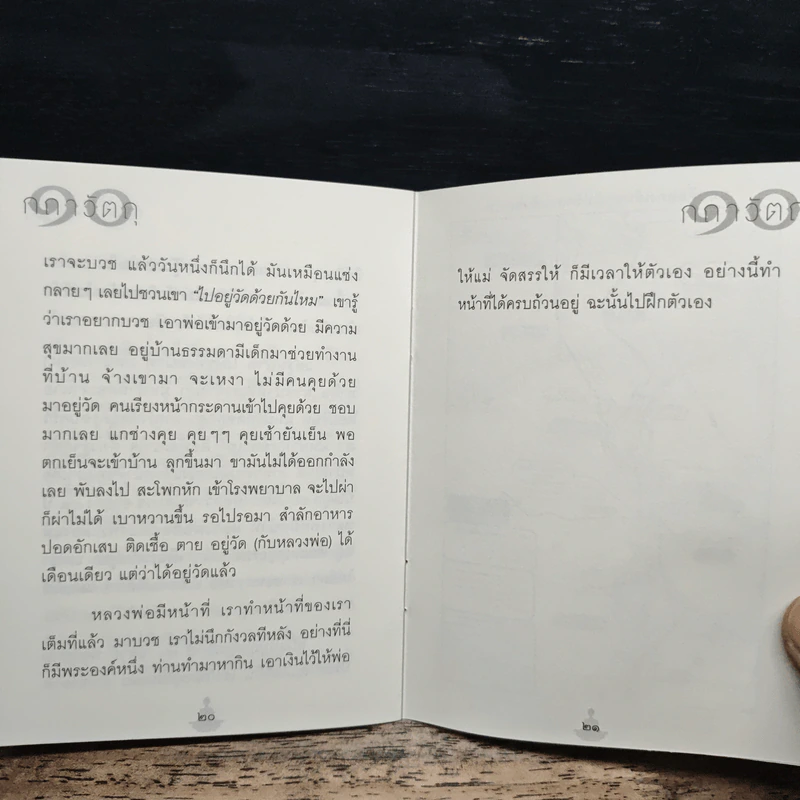 กถาวัตถุ ๑๐
เราจะบวช แล้ววันหนึ่งก็นึกได้ มันเหมือนแช่ง
กลายๆ เลยไปชวนเขา "ไปอยู่วัดด้วยกันไหม" เขารู้
ว่าเราอยากบวช เอาพ่อเข้ามาอยู่วัดด้วย มีความ
สุขมากเลย อยู่บ้านธรรมดามีเด็กมาช่วยทำงาน
ที่บ้าน จ้างเขามา จะเหงา ไม่มีคนคุยด้วย
มาอยู่วัด คนเรียงหน้ากระดานเข้าไปคุยด้วย ชอบ
มากเลย แกช่างคุย คุยๆๆ คุยเช้ายันเย็น พอ
ตกเย็นจะเข้าบ้าน ลุกขึ้นมา ขามันไม่ได้ออกกำลัง
เลย พับลงไป สะโพกหัก เข้าโรงพยาบาล จะไปผ่า
ก็ผ่าไม่ได้ เบาหวานขึ้น รอไปรอมา สำลักอาหาร
ปอดอักเสบ ติดเชื้อ ตาย อยู่วัด (กับหลวงพ่อ) ได้
เดือนเดียว แต่ว่าได้อยู่วัดแล้ว
หลวงพ่อมีหน้าที่ เราทำหน้าที่ของเรา
เต็มที่แล้ว มาบวช เราไม่นึกกังวลทีหลัง อย่างที่นี่
ก็มีพระองค์หนึ่ง ท่านทำมาหากิน เอาเงินไว้ให้พ่อ
๒๐
กถาวัตถุ ๑๐
ให้แม่ จัดสรรให้ ก็มีเวลาให้ตัวเอง อย่างนี้ทำ
หน้าที่ได้ครบถ้วนอยู่ ฉะนั้นไปฝึกตัวเอง
๒๑